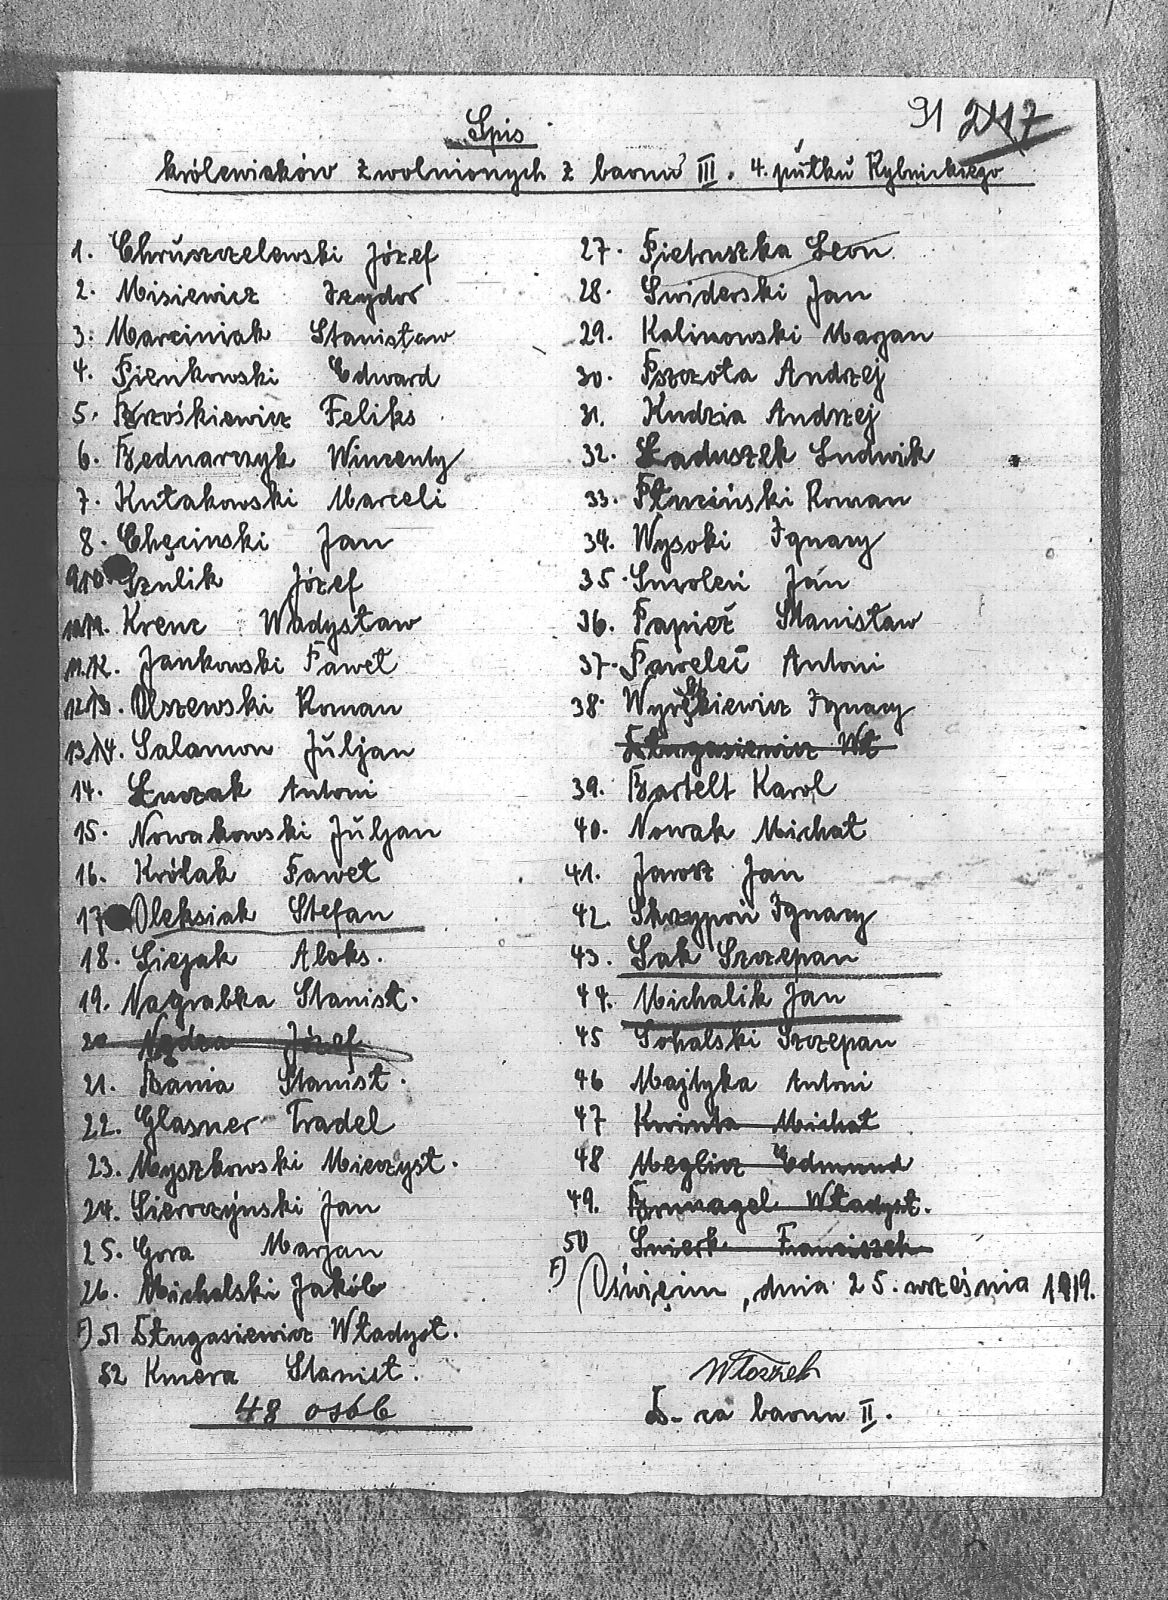 91 2417
Spis
królewiaków zwolnionych z baonu III. 4. pułku Rybnickiego
1. Chruszczelewski Józef
2. Misiewicz Izydor
3. Marciniak Stanisław
4. Pieńkowski Edward
5. Brzośkiewicz Feliks
6. Bednarczyk Wincenty
7. Kułakowski Marceli
8. Chęcinski Jan
9 10 Szulik Józef
10 11. Krenc Władysław
11. 12. Jankowski Paweł
12 13. Olszewski Roman
13 14. Salamon Juljan
14. Łuczak Antoni
15. Nowakowski Juljan
16. Królak Paweł
17 Oleksiak Stefan
18. Siejak Aleks.
19. Nagrabka Stanist.
20 Nędza Józef
21. Bania Stanisł.
22. Glasner Fradel
23. Myszkowski Mieczysł.
24. Sieroczyński Jan
25. Gora Marjan
26. Michalski Jakób
F) 51 Długasiewicz Władysł.
52 Kmera Stanisł.
48 osób
27. Pietruszka Leon
28. Swiderski Jan
29. Kalinowski Marjan
30. Pszczoła Andrzej
31. Kudzia Andrzej
32. Ładuszek Ludwik
33. Tłuciński Roman
34. Wysoki Ignacy
35. Smoleń Jan
36. Papież Stanisław
37. Paweleć Antoni
38. Ignacy
Długasiewicz Wł
39. Bartelt Karol
40. Nowak Michał
41. Jarosz Jan
42 Skrzypoń Ignacy
43. Sak Szczepan
44. Michalik Jan
45 Sohalski Szczepan
46 Majtyka Antoni
47 Kwinta Michał
48 Meglicz Edmund
49. Brunagel Władysł.
50 Smierk Franciszek
F) Oświęcim, dnia 25. września 1919.
Włoszek
D-ca baonu II.